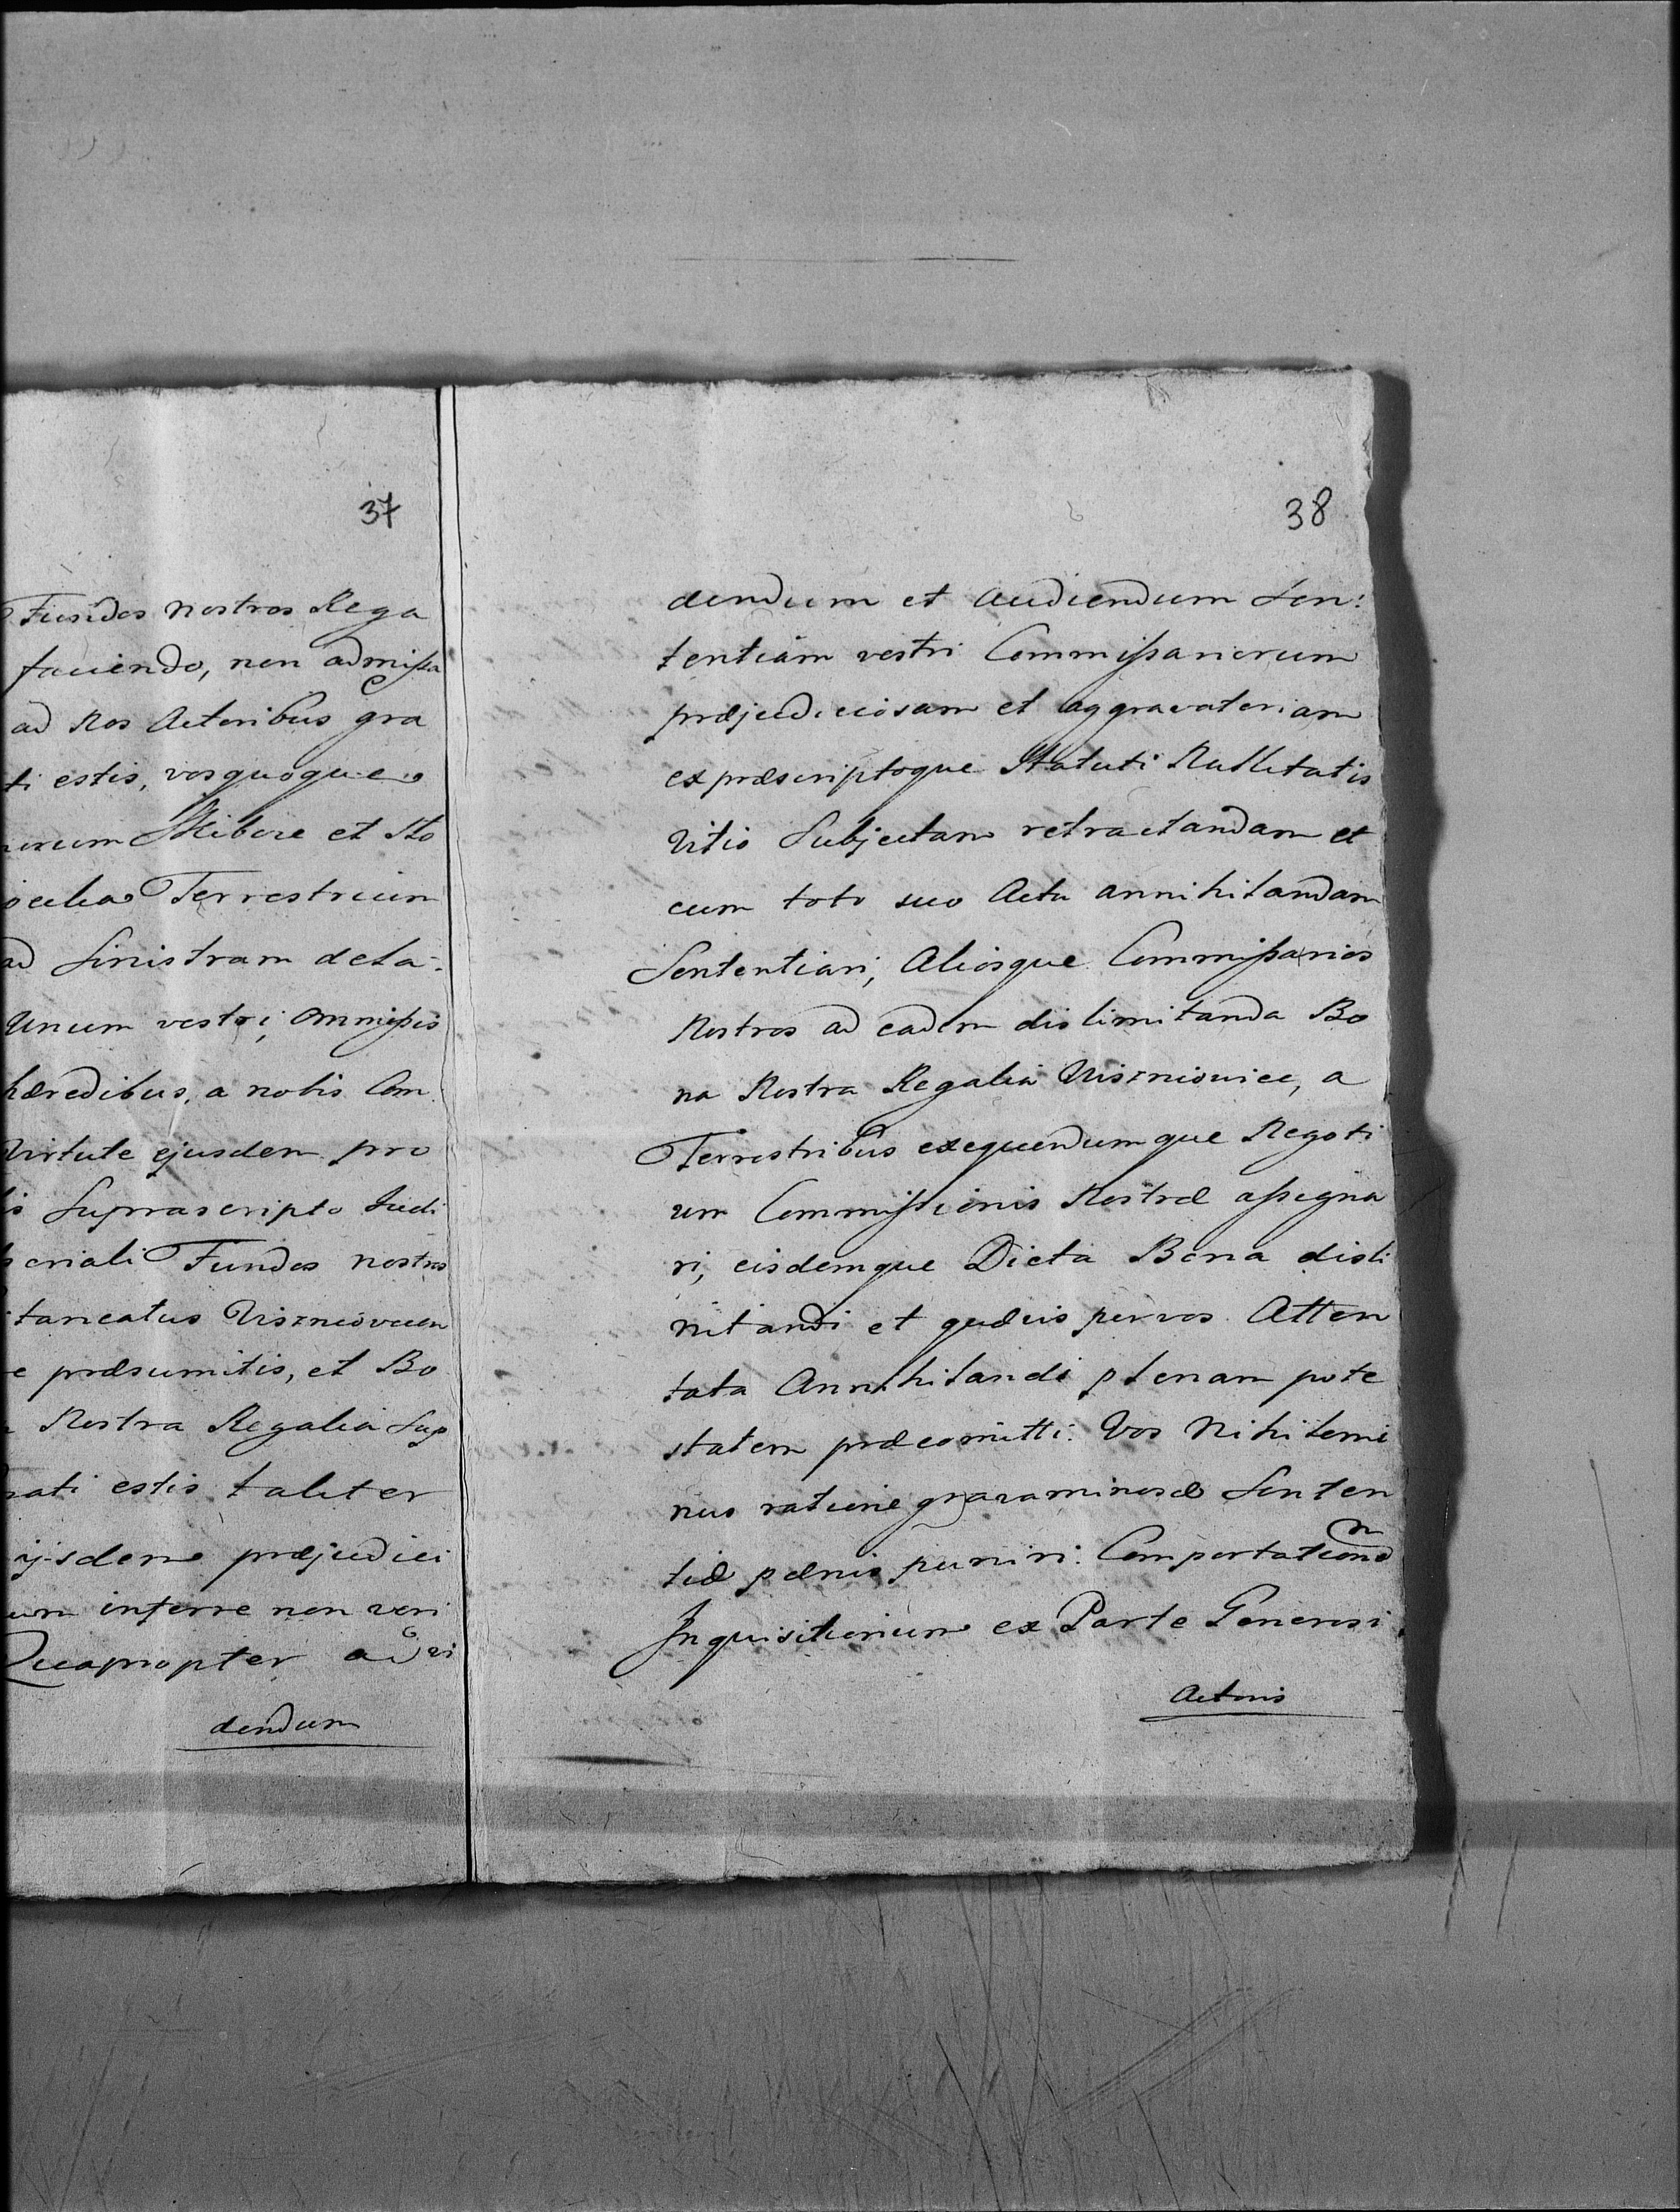 37
Fundos nostros Rega
faciendo, non admissa
ad Nos Actoribus gra
ti estis, vosquoque
Skibore et Sto
Terrestrium
ad Sinistram dela:
Unum vestri, ommissis
hæredibus, a nobis Com
Virtute ejusdem pro
Suprascripto Judi
Fundos nostros
Viszniovien
præsumitis, et Bo
Nostra Regalia Sup
estis taliter
præjudici
inferre non veri
Quapropter ad vi
dendum
38
dendum et audiendum Sen:
tentiam vestri Commissariorum
præjudiciosam et aggravatoriam
ex præscriptoque Statuti Nullitatis
Vitio Subjectam retractandam et
cum toto suo Actu annihilandam
Sententiari, Aliosque Commissarios
Nostros ad eadem dislimitanda Bo
na Nostra Regalia Viszniowiec, a
Terrestribus exequendumque Negoti
um Commissionis Nostræ assigna
ri, eisdemque Dicta Bona disli
mitandi et quævis per vos Atten
tata Annihilandi plenam pote
statem præcomitti. Vos Nihilomi
nus ratione gravaminosæ Senten
tiæ pænis puniri. Comportationẽ
Inquisitionum ex Parte Generosi
Actoris